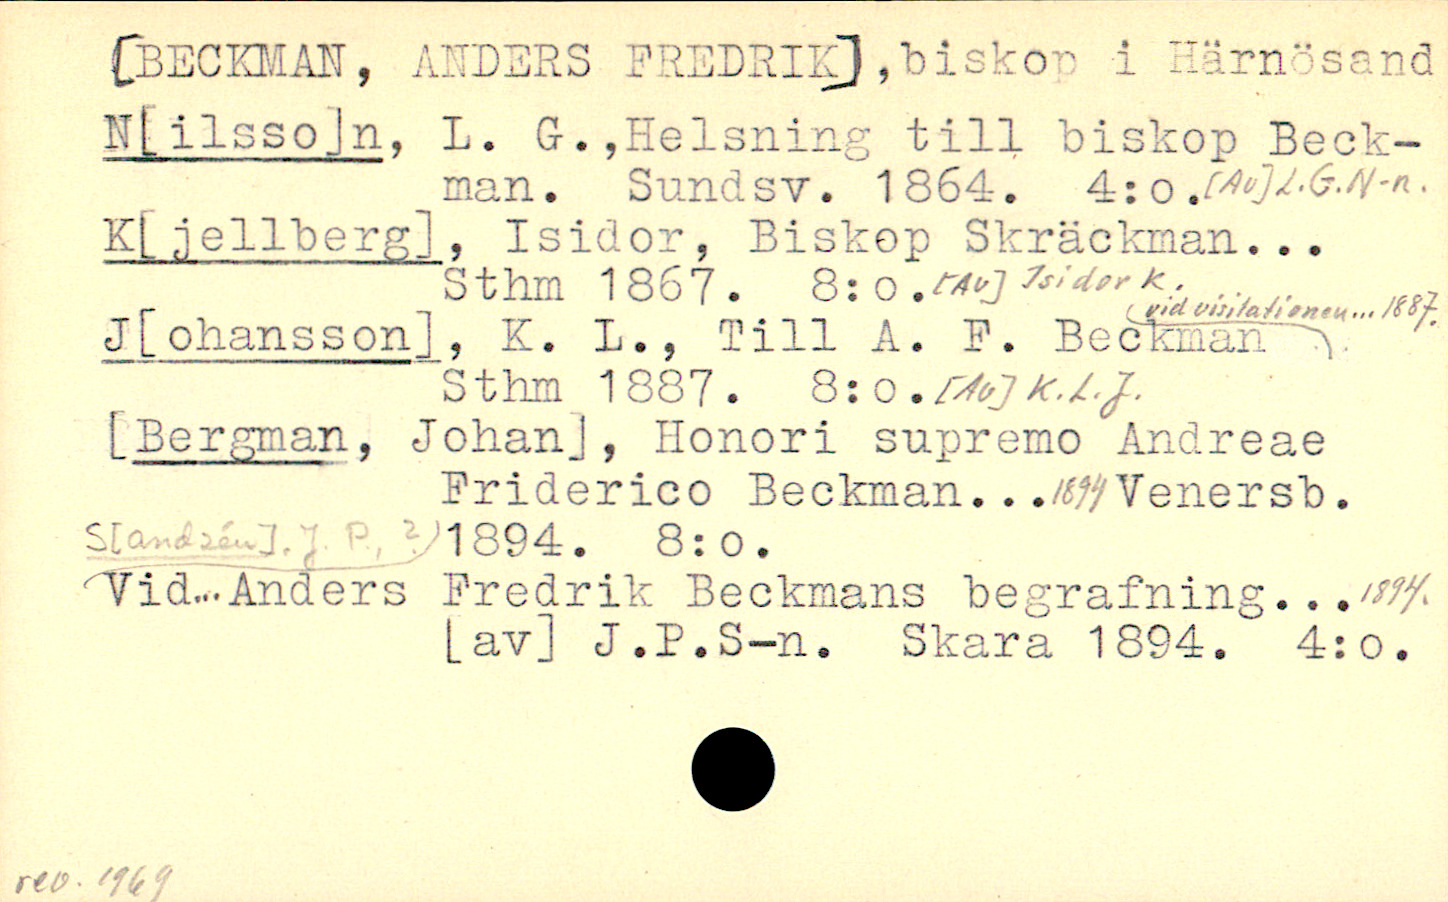 [BECKMAN, ANDERS FREDRIK], biskop i Härnösand
N[ilsso]n, L. G., Helsning till biskop Beck-
man. Sundsv. 1864. 4:o. [Av] L.G.N-n.
K[jellberg], Isidor, Biskop Skräckman...
Sthm 1867. 8:o. [Av] Isidor K.
vid visitationen... 1887.
J[ohansson], K. L., Till A. F. Beckman
Sthm 1887. 8:o. [Av] K.L.J.
[Bergman, Johan], Honori supremo Andreae
Friderico Beckman...1894 Venersb.
S[andzén]. J. P., ?) 1894. 8:o.
Vid... Anders Fredrik Beckmans begrafning...1894.
[av] J.P.S-n. Skara 1894. 4:o.
rev. 1969